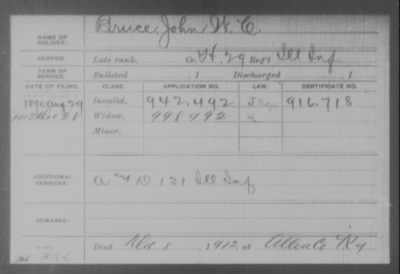 Bruce, John W. C.
NAME OF SOLDIER:
SERVICE: Late rank, Co. H, 29 Reg't Ill Inf
TERM OF SERVICE: Enlisted , 1 Discharged , 1
DATE OF FILING. CLASS. APPLICATION NO. LAW. CERTIFICATE NO.
1890 Aug 29 Invalid, 942.492 916.718
Widow, 998992
Minor,
ADDITIONAL SERVICES: D 131 Ill Inf
REMARKS:
Died Dec 8, 1912, at Allen Co Ky